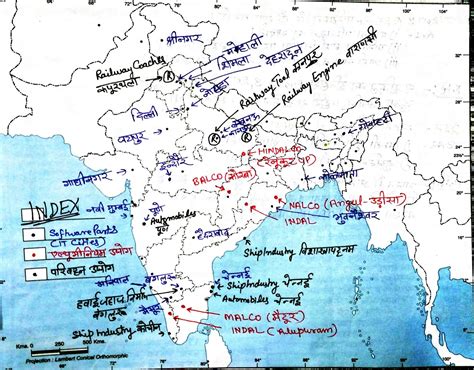 श्रीनगर
मोहाली
शिमला
देहरादून
Railway Coaches
कपूरथला
नोएडा
Railway Tool कानपुर
Railway Engine वाराणसी
दिल्ली
लखनऊ
कानपुर
जयपुर
गोवाहाटी
HINDALCO
(रेनूकूट UP)
BALCO (कोरबा)
इंदौर
गाँधीनगर
कोलकाता
NALCO (Angul-उड़ीसा)
INDAL
भुवनेश्वर
INDEX
नवी मुम्बई
पुणे
Automobiles
पुणे
Software Parks
(IT Cities)
एल्युमीनियम उद्योग
परिवहन उद्योग
हैदराबाद
Ship Industry विशाखापट्टनम
मणिपाल
बंगलुरु
चेन्नई
Ship Industry चेन्नई
Automobiles चेन्नई
हवाई जहाज निर्माण
बंगलुरु
मैसूर
MALCO (मेटूर)
INDAL (Alupuram)
Ship Industry कोचीन
Kms. 250 0 500 Kms.
Projection : Lambert Conical Orthomorphic